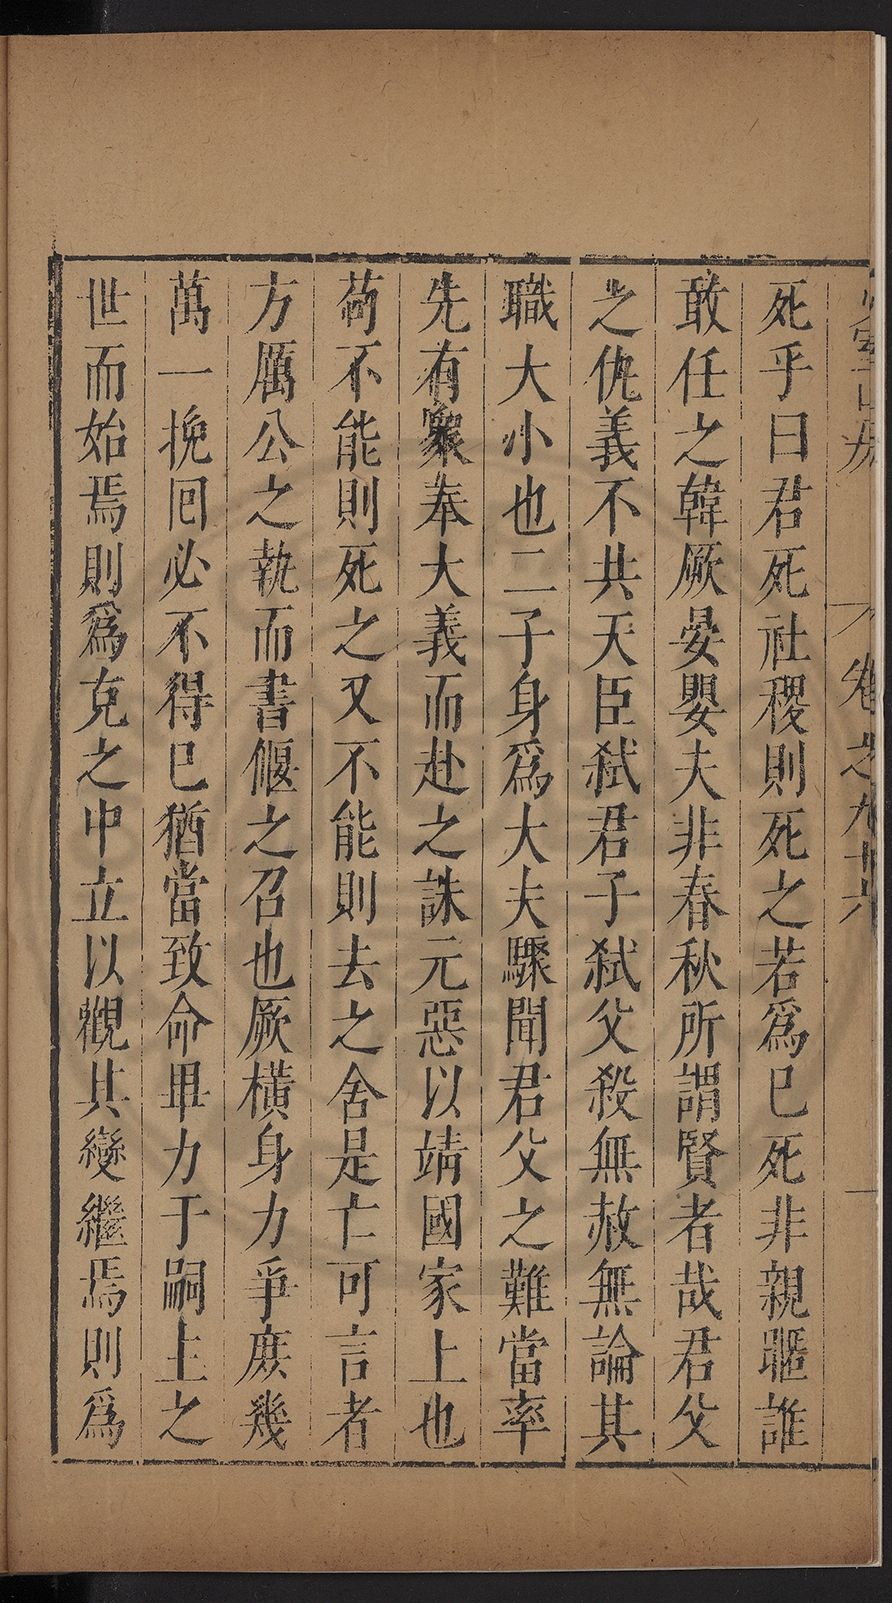 卷之九十六
死乎曰君死社稷則死之若爲巳死非親暱誰
敢任之韓厥晏嬰夫非春秋所謂賢者哉君父
之仇義不共天臣弑君子弑父殺無赦無論其
職大小也二子身爲大夫驟聞君父之難當率
先有衆奉大義而赴之誅元惡以靖國家上也
苟不能則死之又不能則去之舍是亡可言者
方厲公之執而書偃之召也厥橫身力爭庶幾
萬一挽囘必不得巳猶當致命畢力于嗣主之
世而始焉則爲克之中立以觀其變繼焉則爲